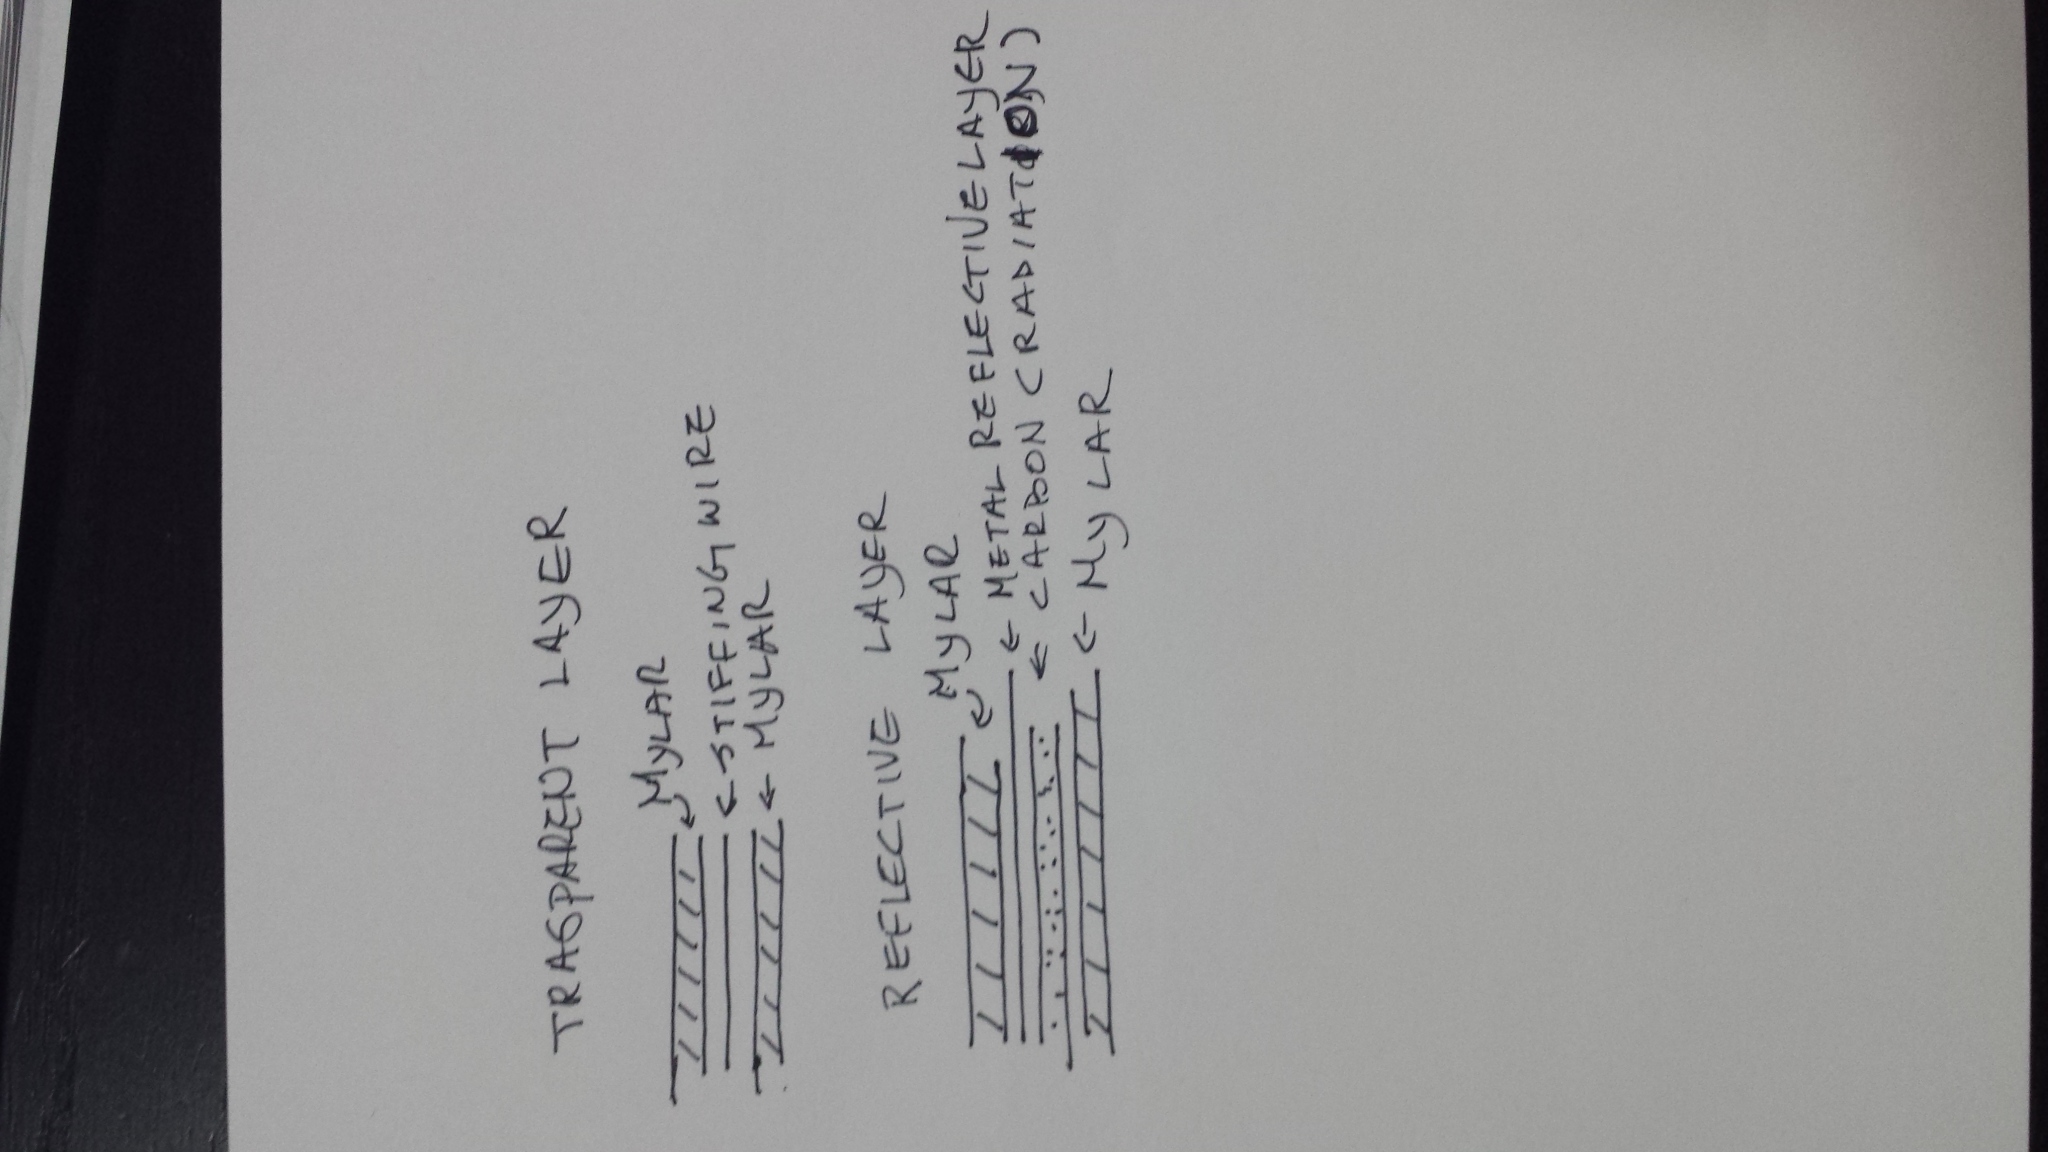 TRASPARENT LAYER
MYLAR
STIFFING WIRE
MYLAR
REFLECTIVE LAYER
MYLAR
METAL REFLECTIVE LAYER
CARBON (RADIATION)
MYLAR